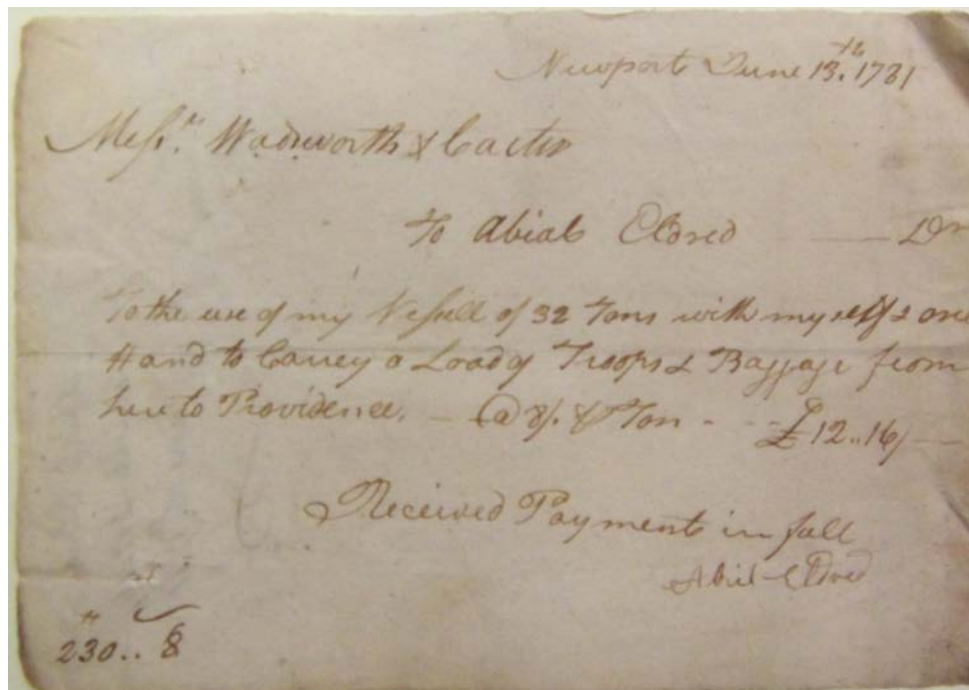 Newport June 13.th 1781
Messrs. Wadsworth & Carter
To Abial Eldred — Dr
To the use of my Vessell of 32 Tons with myself & one
Hand to Carrey a Load of Troops & Baggage from
here to Providence. - @ 8/. ⅌ Ton - - £12..16/ —
Received Payment in full
Abiel Eldred
230.. 8